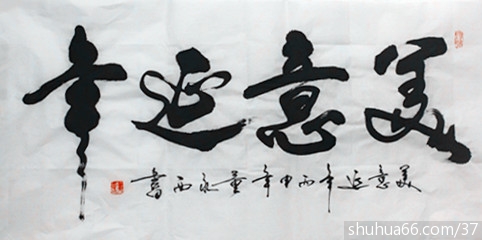 美意延年
美意延年丙申年董永西書
shuhua66.com/37